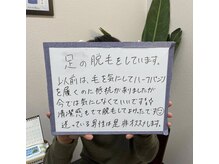 足の脱毛をしています。
以前は、毛を気にしてハーフパンツ
を履くのに抵抗がありましたが
今では気にしなくていいです!!
清潔感もでて脱毛してよかったです
迷っている男性は是非オススメします。